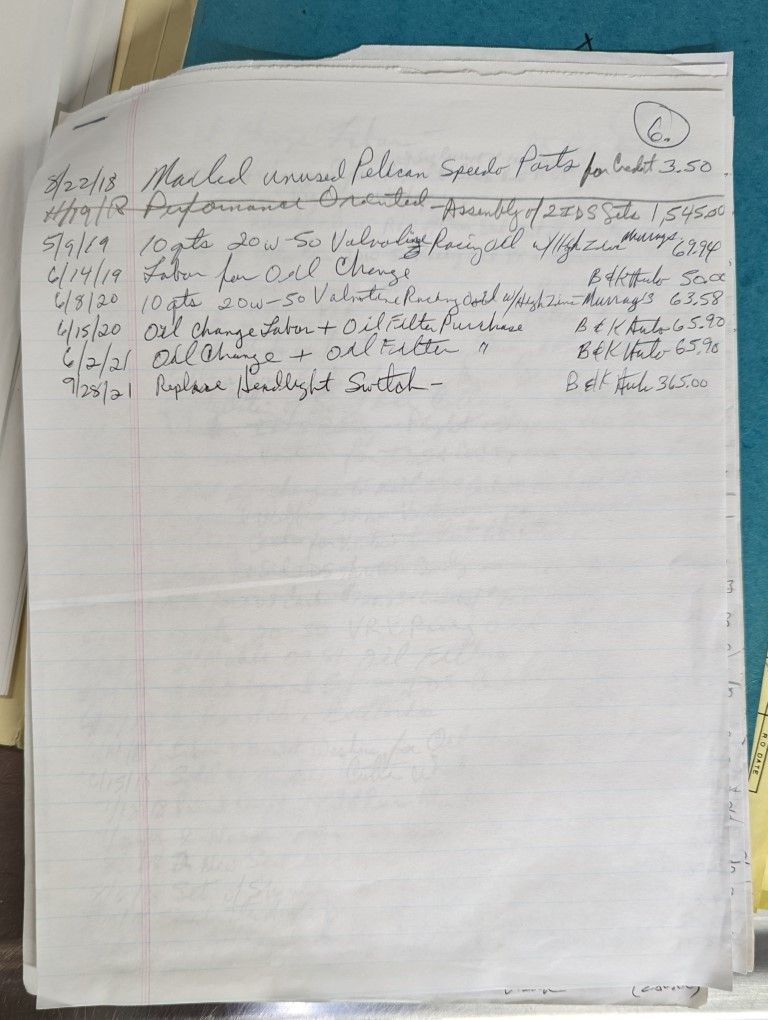 6.
8/22/18 Mailed unused Pelican Speedo Parts for Credit 3.50
Performance Oriented - Assembly of 2 IDS Sets 1,545.00
5/9/19 10 qts 20w-50 Valvoline Racing Oil w/High Zinc Murrays 69.94
6/14/19 Labor for Oil Change B&K Auto 50.00
6/8/20 10 qts 20w-50 Valvoline Racing Oil w/High Zinc Murray's 63.58
6/15/20 Oil Change Labor + Oil Filter Purchase B & K Auto 65.90
6/2/21 Oil Change + Oil Filter " B&K Auto 65.90
9/28/21 Replace Headlight Switch - B&K Auto 365.00
R.O DATE